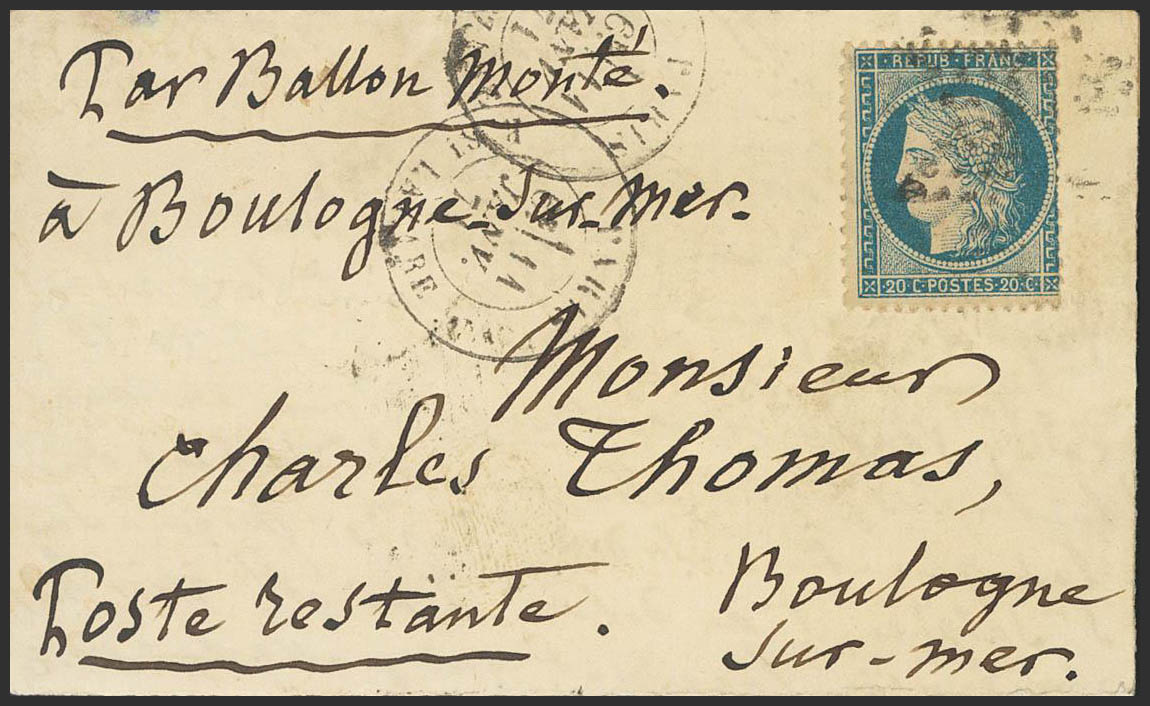 Par Ballon Monté.
à Boulogne-Sur-Mer.
REPUB·FRANC
20·C·POSTES·20·C
PARIS
JANV
Monsieur
Charles Thomas,
Poste restante.
Boulogne
sur-mer.